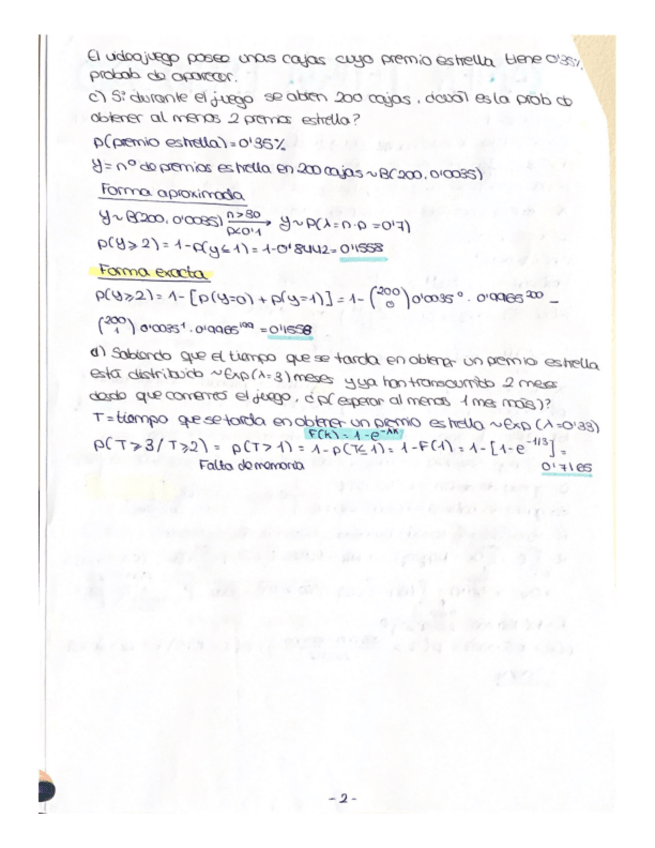 El videojuego posee unas cajas cuyo premio estrella tiene 0'35%
probab de aparecer.
c) Si durante el juego se abren 200 cajas, ¿cuál es la prob de
obtener al menos 2 premios estrella?
P(premio estrella) = 0'35%
Y = nº de premios estrella en 200 cajas ~ B(200, 0'0035)
Forma aproximada
Y ~ B(200, 0'0035) n>30 p<0'1 → Y ~ P(λ = n·p = 0'7)
P(Y ≥ 2) = 1 - P(Y ≤ 1) = 1 - 0'8442 = 0'1558
Forma exacta
P(Y ≥ 2) = 1 - [P(Y=0) + P(Y=1)] = 1 - (200 0) 0'0035⁰ · 0'9965²⁰⁰ -
(200 1) 0'0035¹ · 0'9965¹⁹⁹ = 0'1558
d) Sabiendo que el tiempo que se tarda en obtener un premio estrella
está distribuido ~ Exp(λ=3) meses y ya han transcurrido 2 meses
desde que comenzó el juego, ¿P(esperar al menos 1 mes más)?
T = tiempo que se tarda en obtener un premio estrella ~ Exp(λ=0'33)
F(k) = 1 - e^-λk
P(T ≥ 3 / T ≥ 2) = P(T > 1) = 1 - P(T ≤ 1) = 1 - F(1) = 1 - [1 - e^-1/3] =
Falta de memoria 0'7165
- 2 -